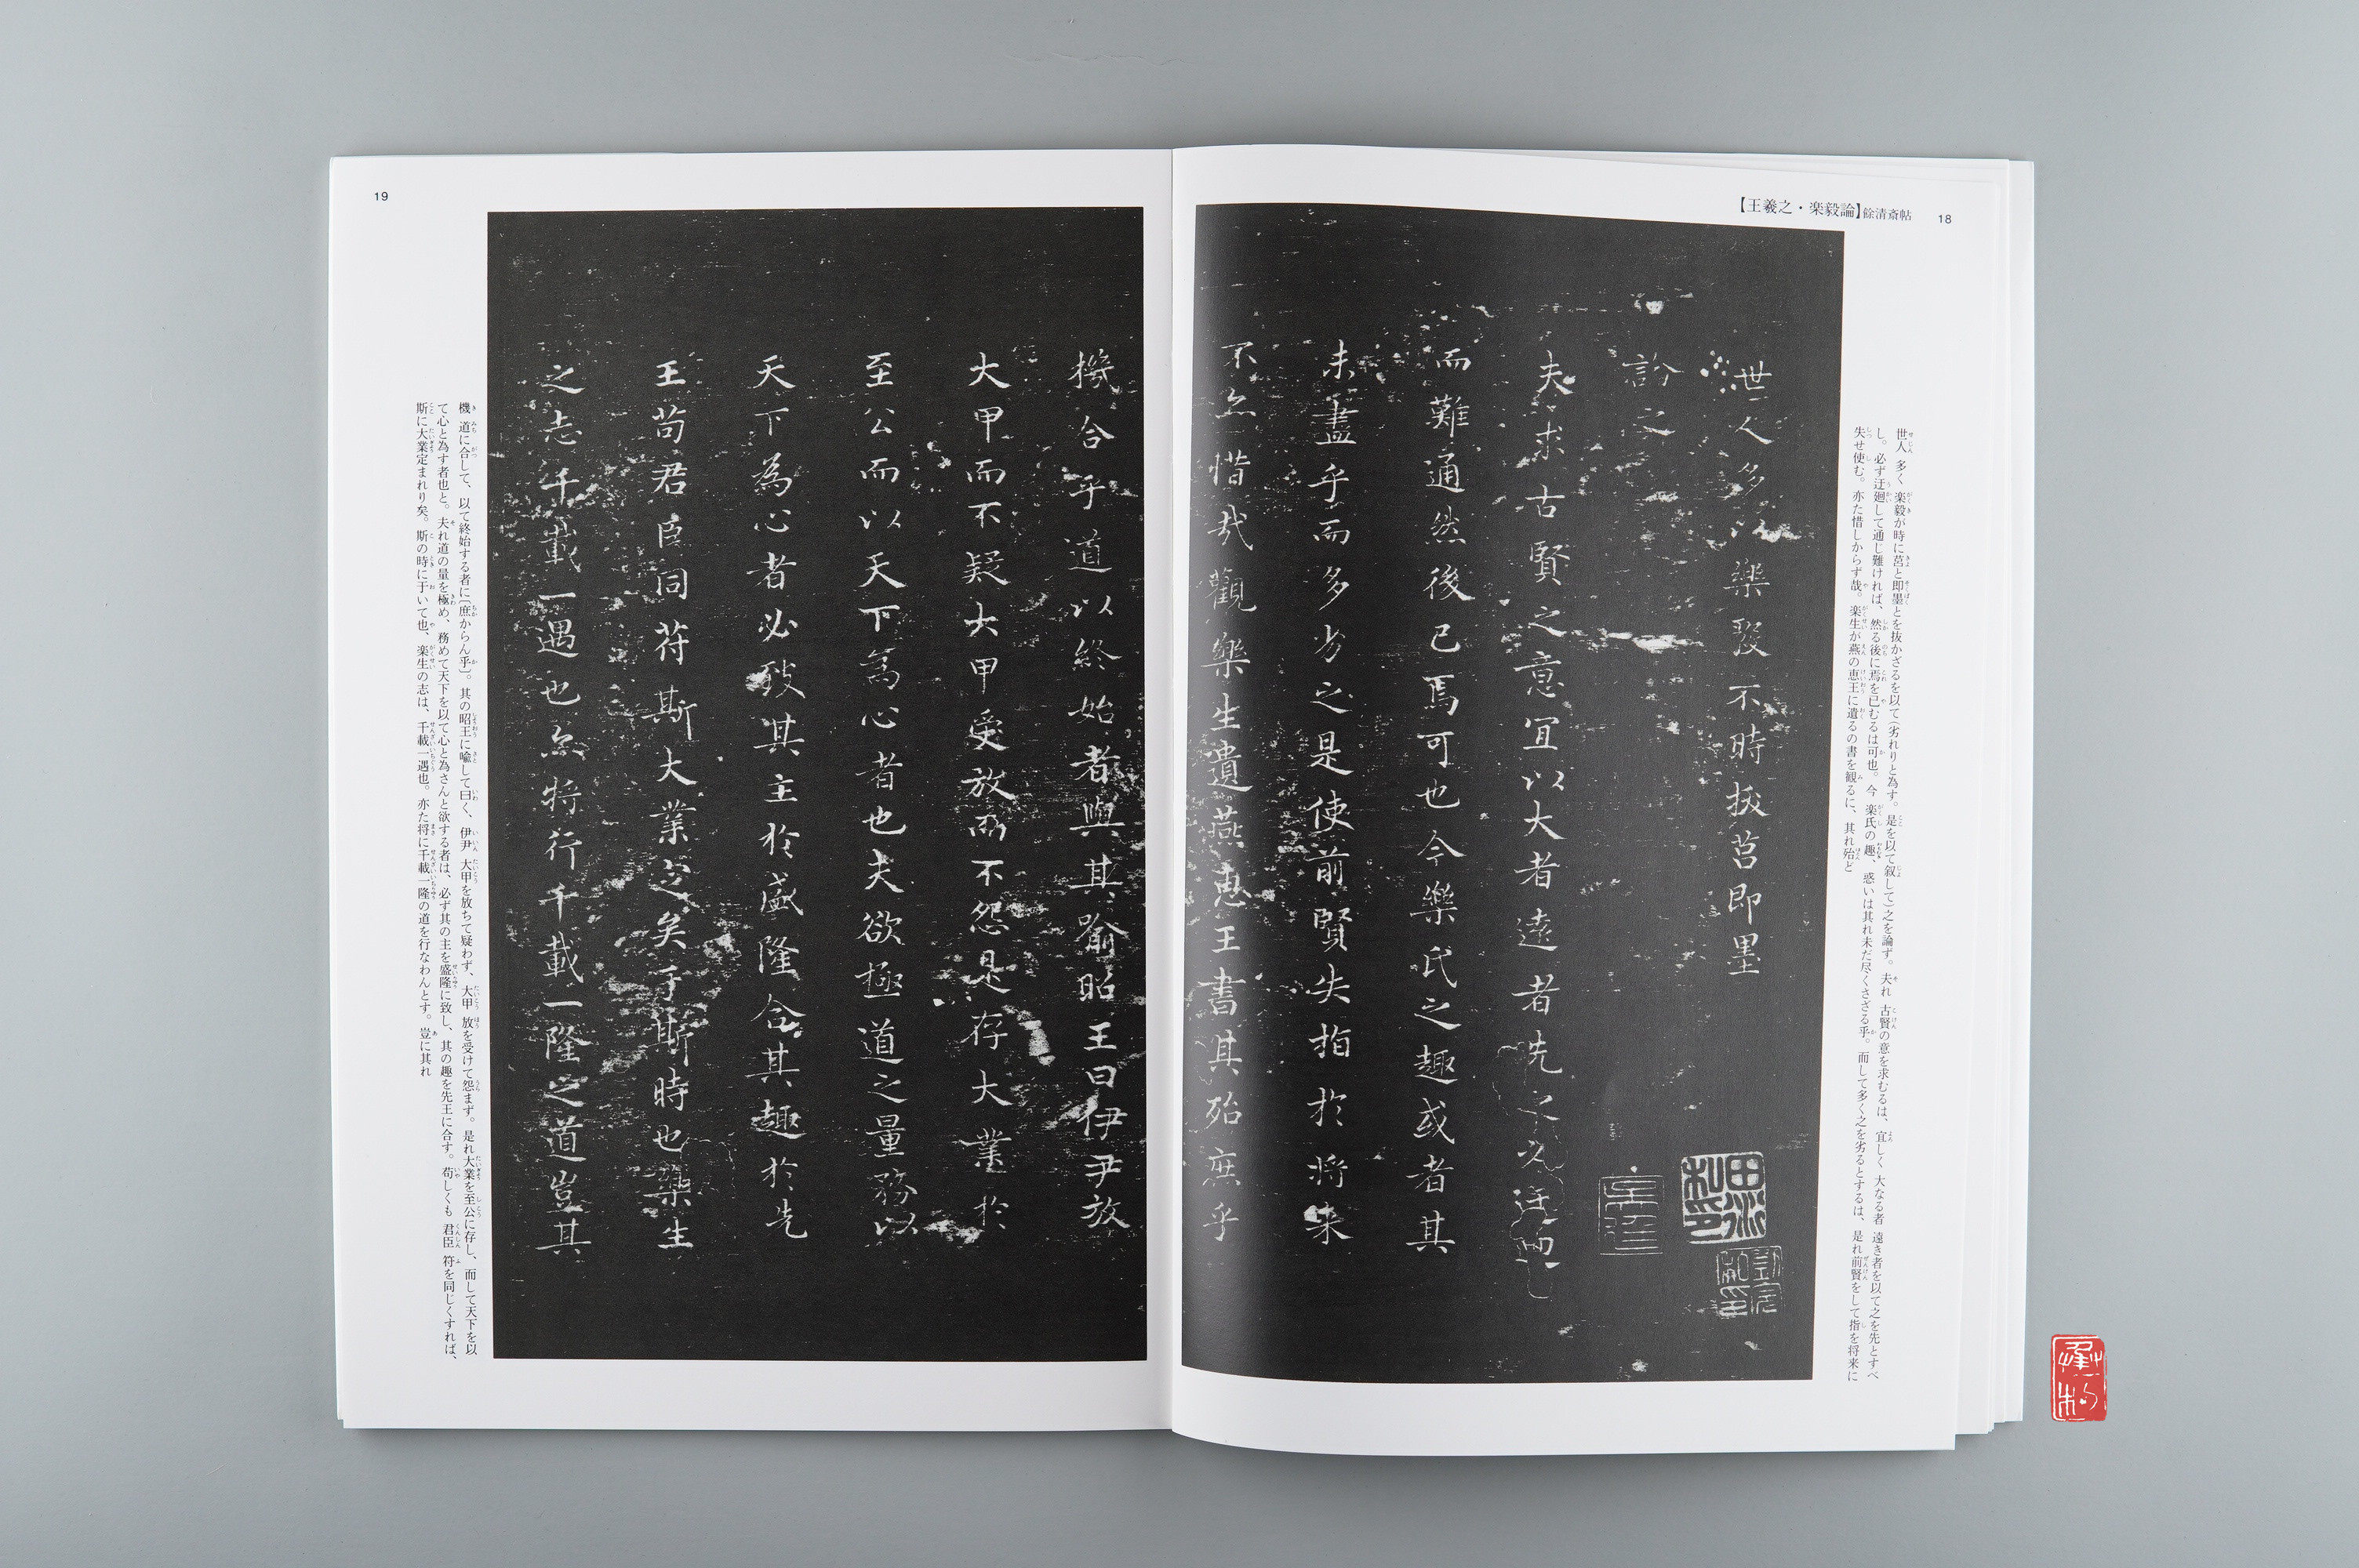 【王羲之・楽毅論】餘清斎帖
18
世人 多く 楽毅が時に莒と即墨とを抜かざるを以て(劣れりと為す。是を以て叙して)之を論ず。夫れ 古賢の意を求むるは、宜しく 大なる者 遠き者を以て之を先とすべ
し。必ず迂廻して通じ難ければ、然る後に焉を已むるは可也。今 楽氏の趣、惑いは其れ未だ尽くさざる乎。而して多く之を劣るとするは、是れ前賢をして指を将来に
失せ使む。亦た惜しからず哉。楽生が燕の恵王に遺るの書を観るに、其れ殆と
世人多以樂毅不時拔莒即墨
論之
夫求古賢之意宜以大者遠者先之必迂迴
而難通然後已焉可也今樂氏之趣或者其
未盡乎而多劣之是使前賢失指於將来
不亦惜哉觀樂生遺燕惠王書其殆庶乎
19
機合乎道以終始者與其喻昭王曰伊尹放
大甲而不疑大甲受放而不怨是存大業於
至公而以天下為心者也夫欲極道之量務以
天下為心者必致其主於盛隆合其趣於先
王苟君臣同苻斯大業定矣于斯時也樂生
之志千載一遇也亦將行千載一隆之道豈其
機 道に合して、以て終始する者に(庶からん乎)。其の昭王に喩して曰く、伊尹 大甲を放ちて疑わず、大甲 放を受けて怨まず。是れ大業を至公に存し、而して天下を以
て心と為す者也と。夫れ道の量を極め、務めて天下を以て心と為さんと欲する者は、必ず其の主を盛隆に致し、其の趣を先王に合す。苟しくも 君臣 符を同じくすれば、
斯に大業定まれり矣。斯の時に于いて也、楽生の志は、千載一遇也。亦た将に千載一隆の道を行なわんとす。豈に其れ